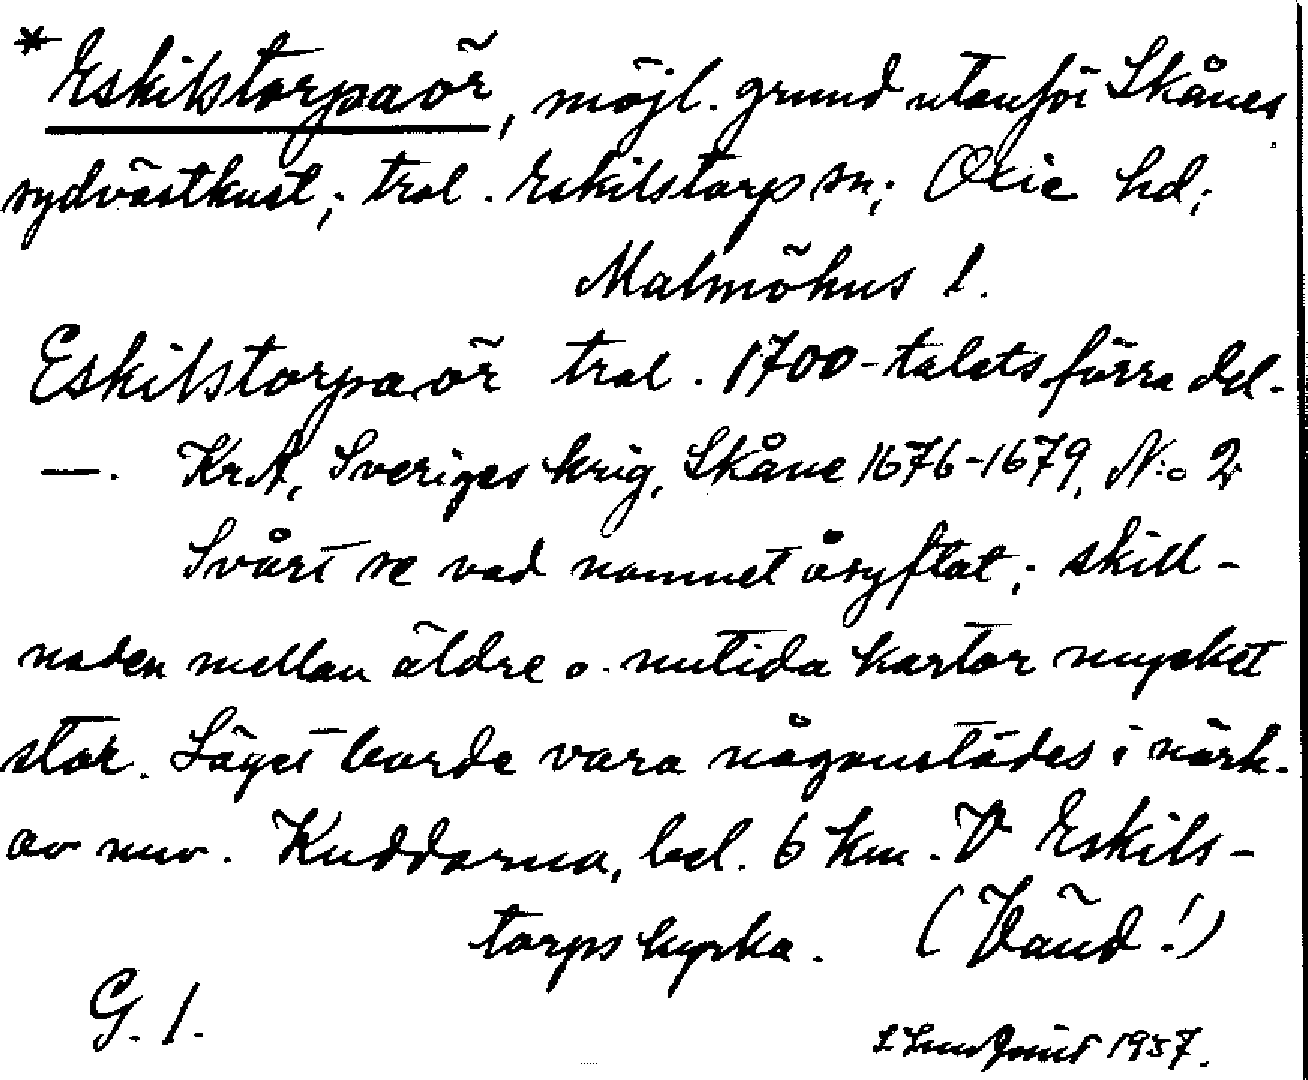 *Eskilstorpaör, möjl. grund utanför Skånes
sydvästkust; trol. Eskilstorp sn; Oxie hd;
Malmöhus l.
Eskilstorpaör trol. 1700-talets förra del.
—. KrA, Sveriges krig, Skåne 1676-1679, N:o 2
Svårt se vad namnet åsyftat; skill-
naden mellan äldre o. nutida kartor mycket
stor. Läget borde vara någonstädes i närh.
av nuv. Kuddarna, bel. 6 km. V Eskils-
torps kyrka. (Vänd!)
G. 1.
1957.